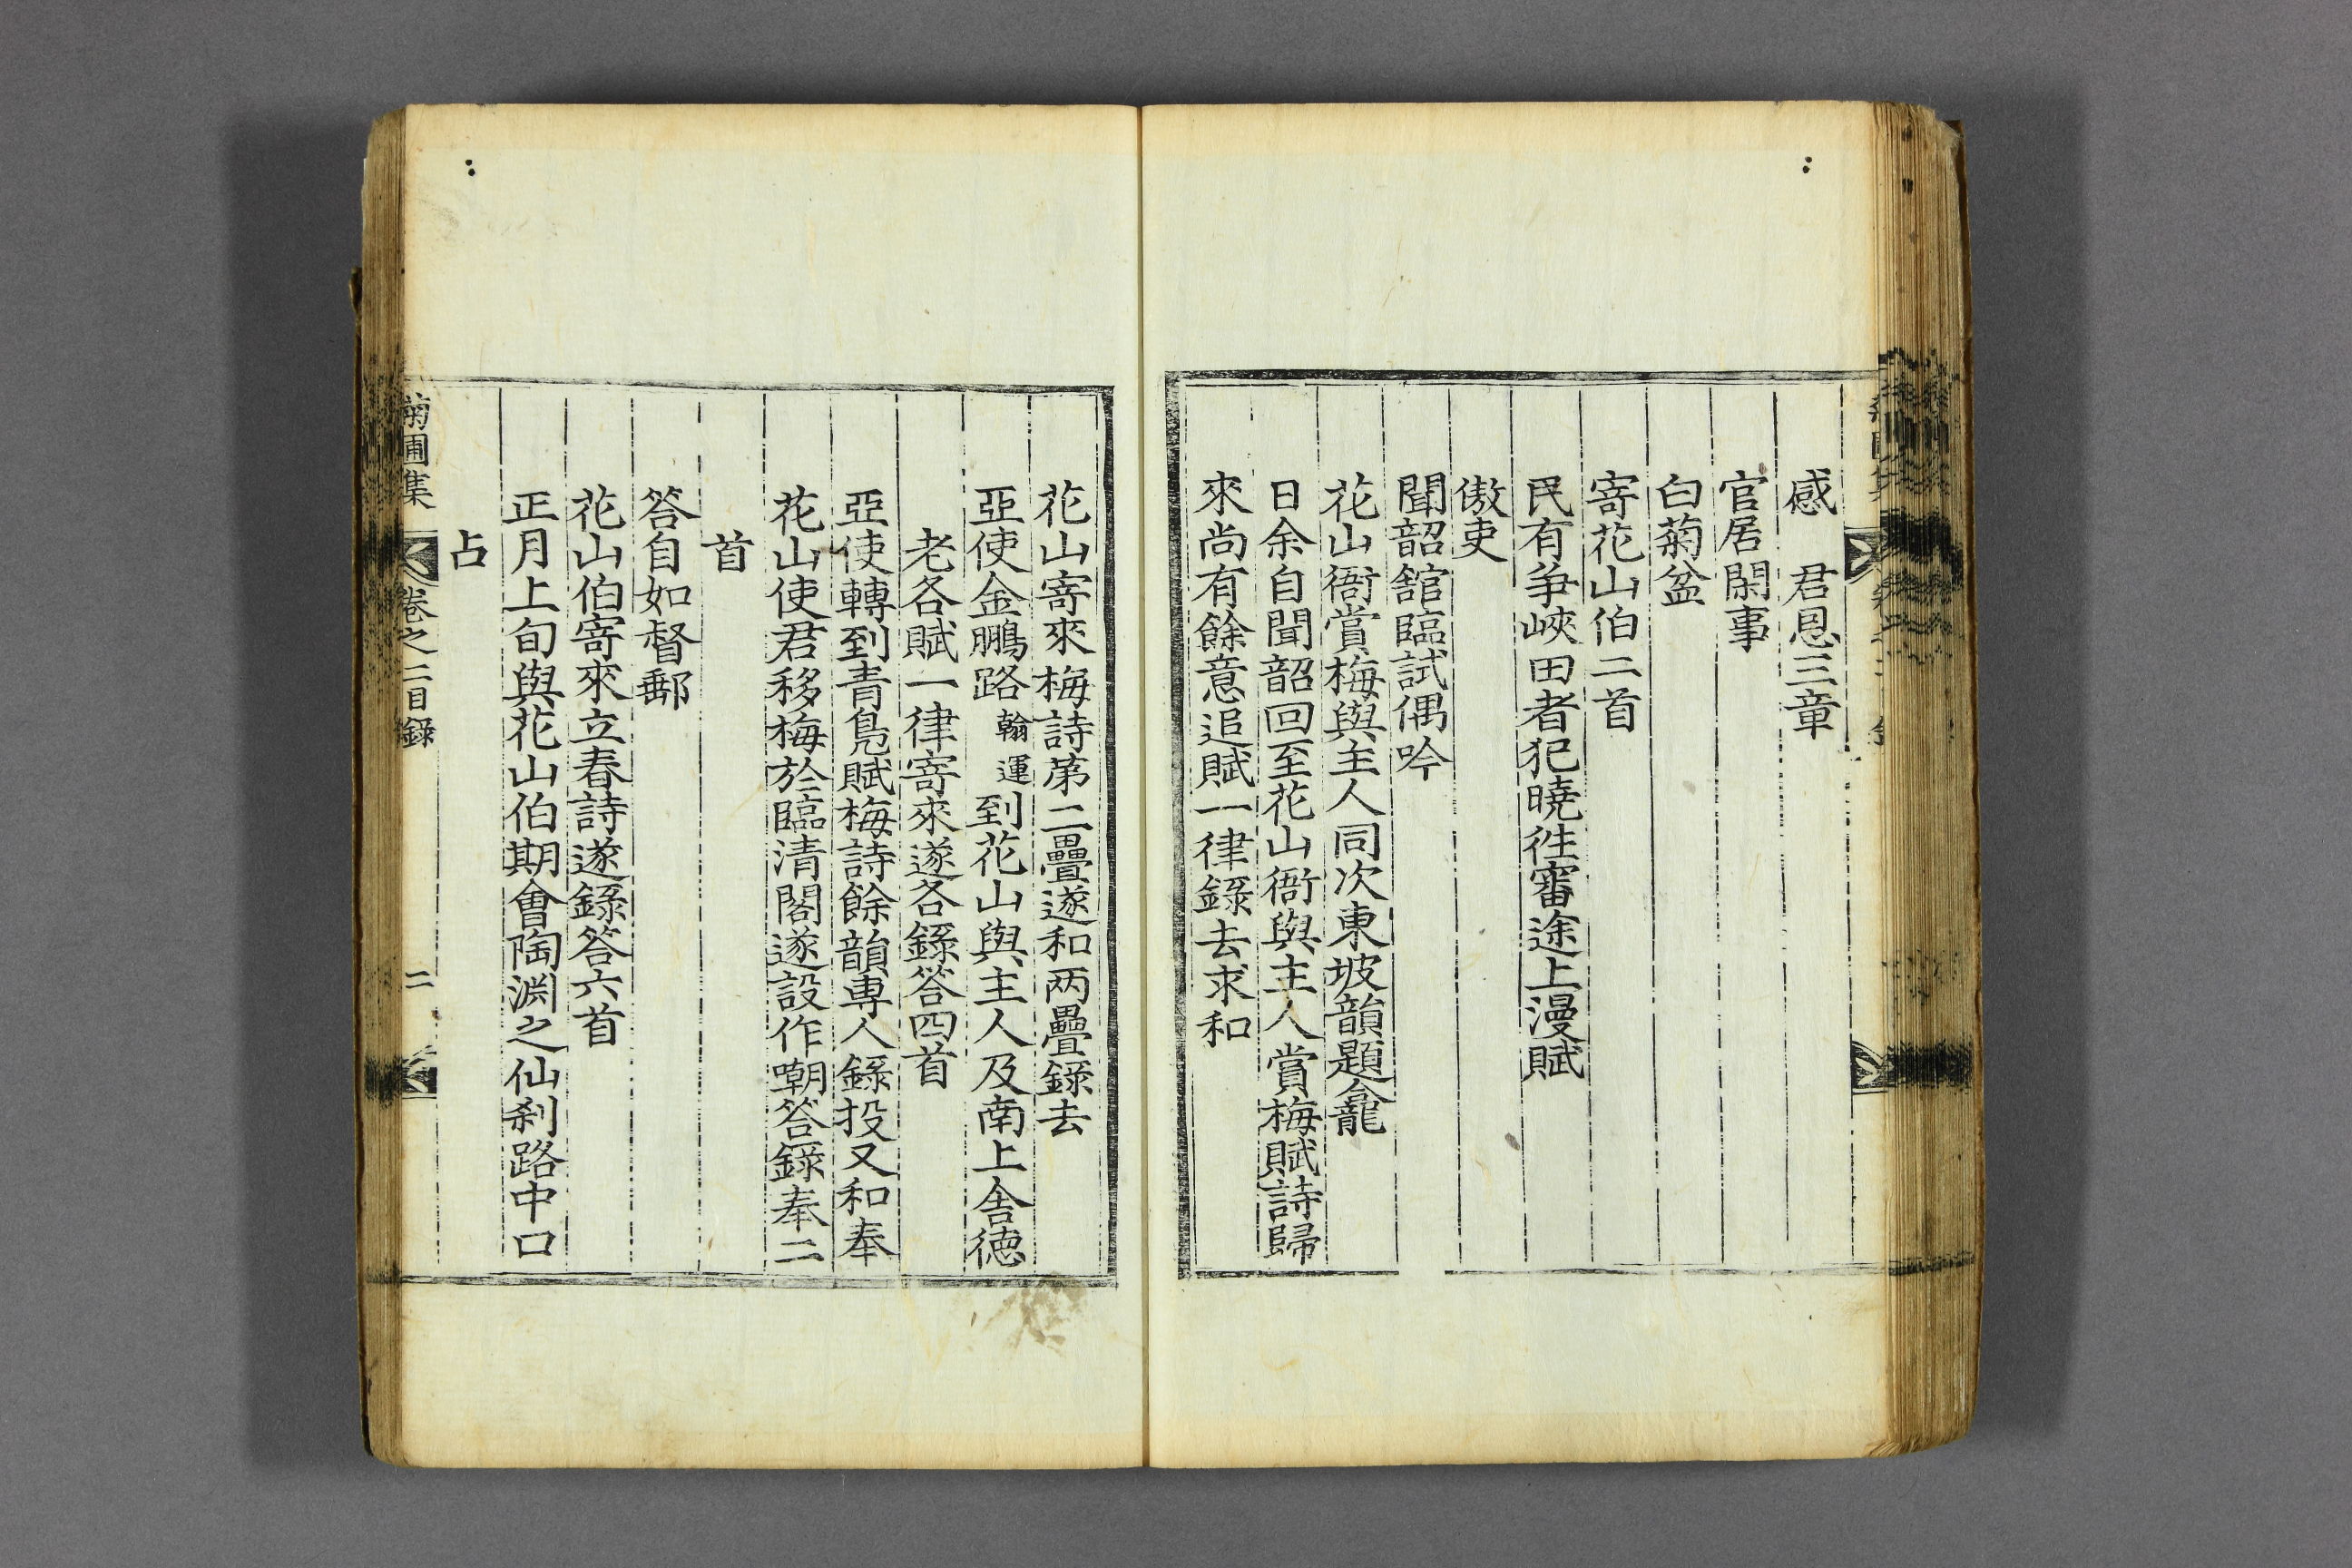 感 君恩三章
官居閑事
白菊盆
寄花山伯二首
民有爭峽田者犯曉徃審途上漫賦
傲吏
聞韶舘臨試偶吟
花山衙賞梅與主人同次東坡韻題龕
日余自聞韶回至花山衙與主人賞梅賦詩歸
來尚有餘意追賦一律錄去求和
花山寄來梅詩第二疊遂和兩疊錄去
亞使金鵬路翰運到花山與主人及南上舍德
老各賦一律寄來遂各錄答四首
亞使轉到青鳧賦梅詩餘韻專人錄投又和奉
花山使君移梅於臨清閣遂設作嘲答錄奉二
首
答自如督郵
花山伯寄來立春詩遂錄答六首
正月上旬與花山伯期會陶淵之仙刹路中口
占
菊圃集 卷之二目錄 二